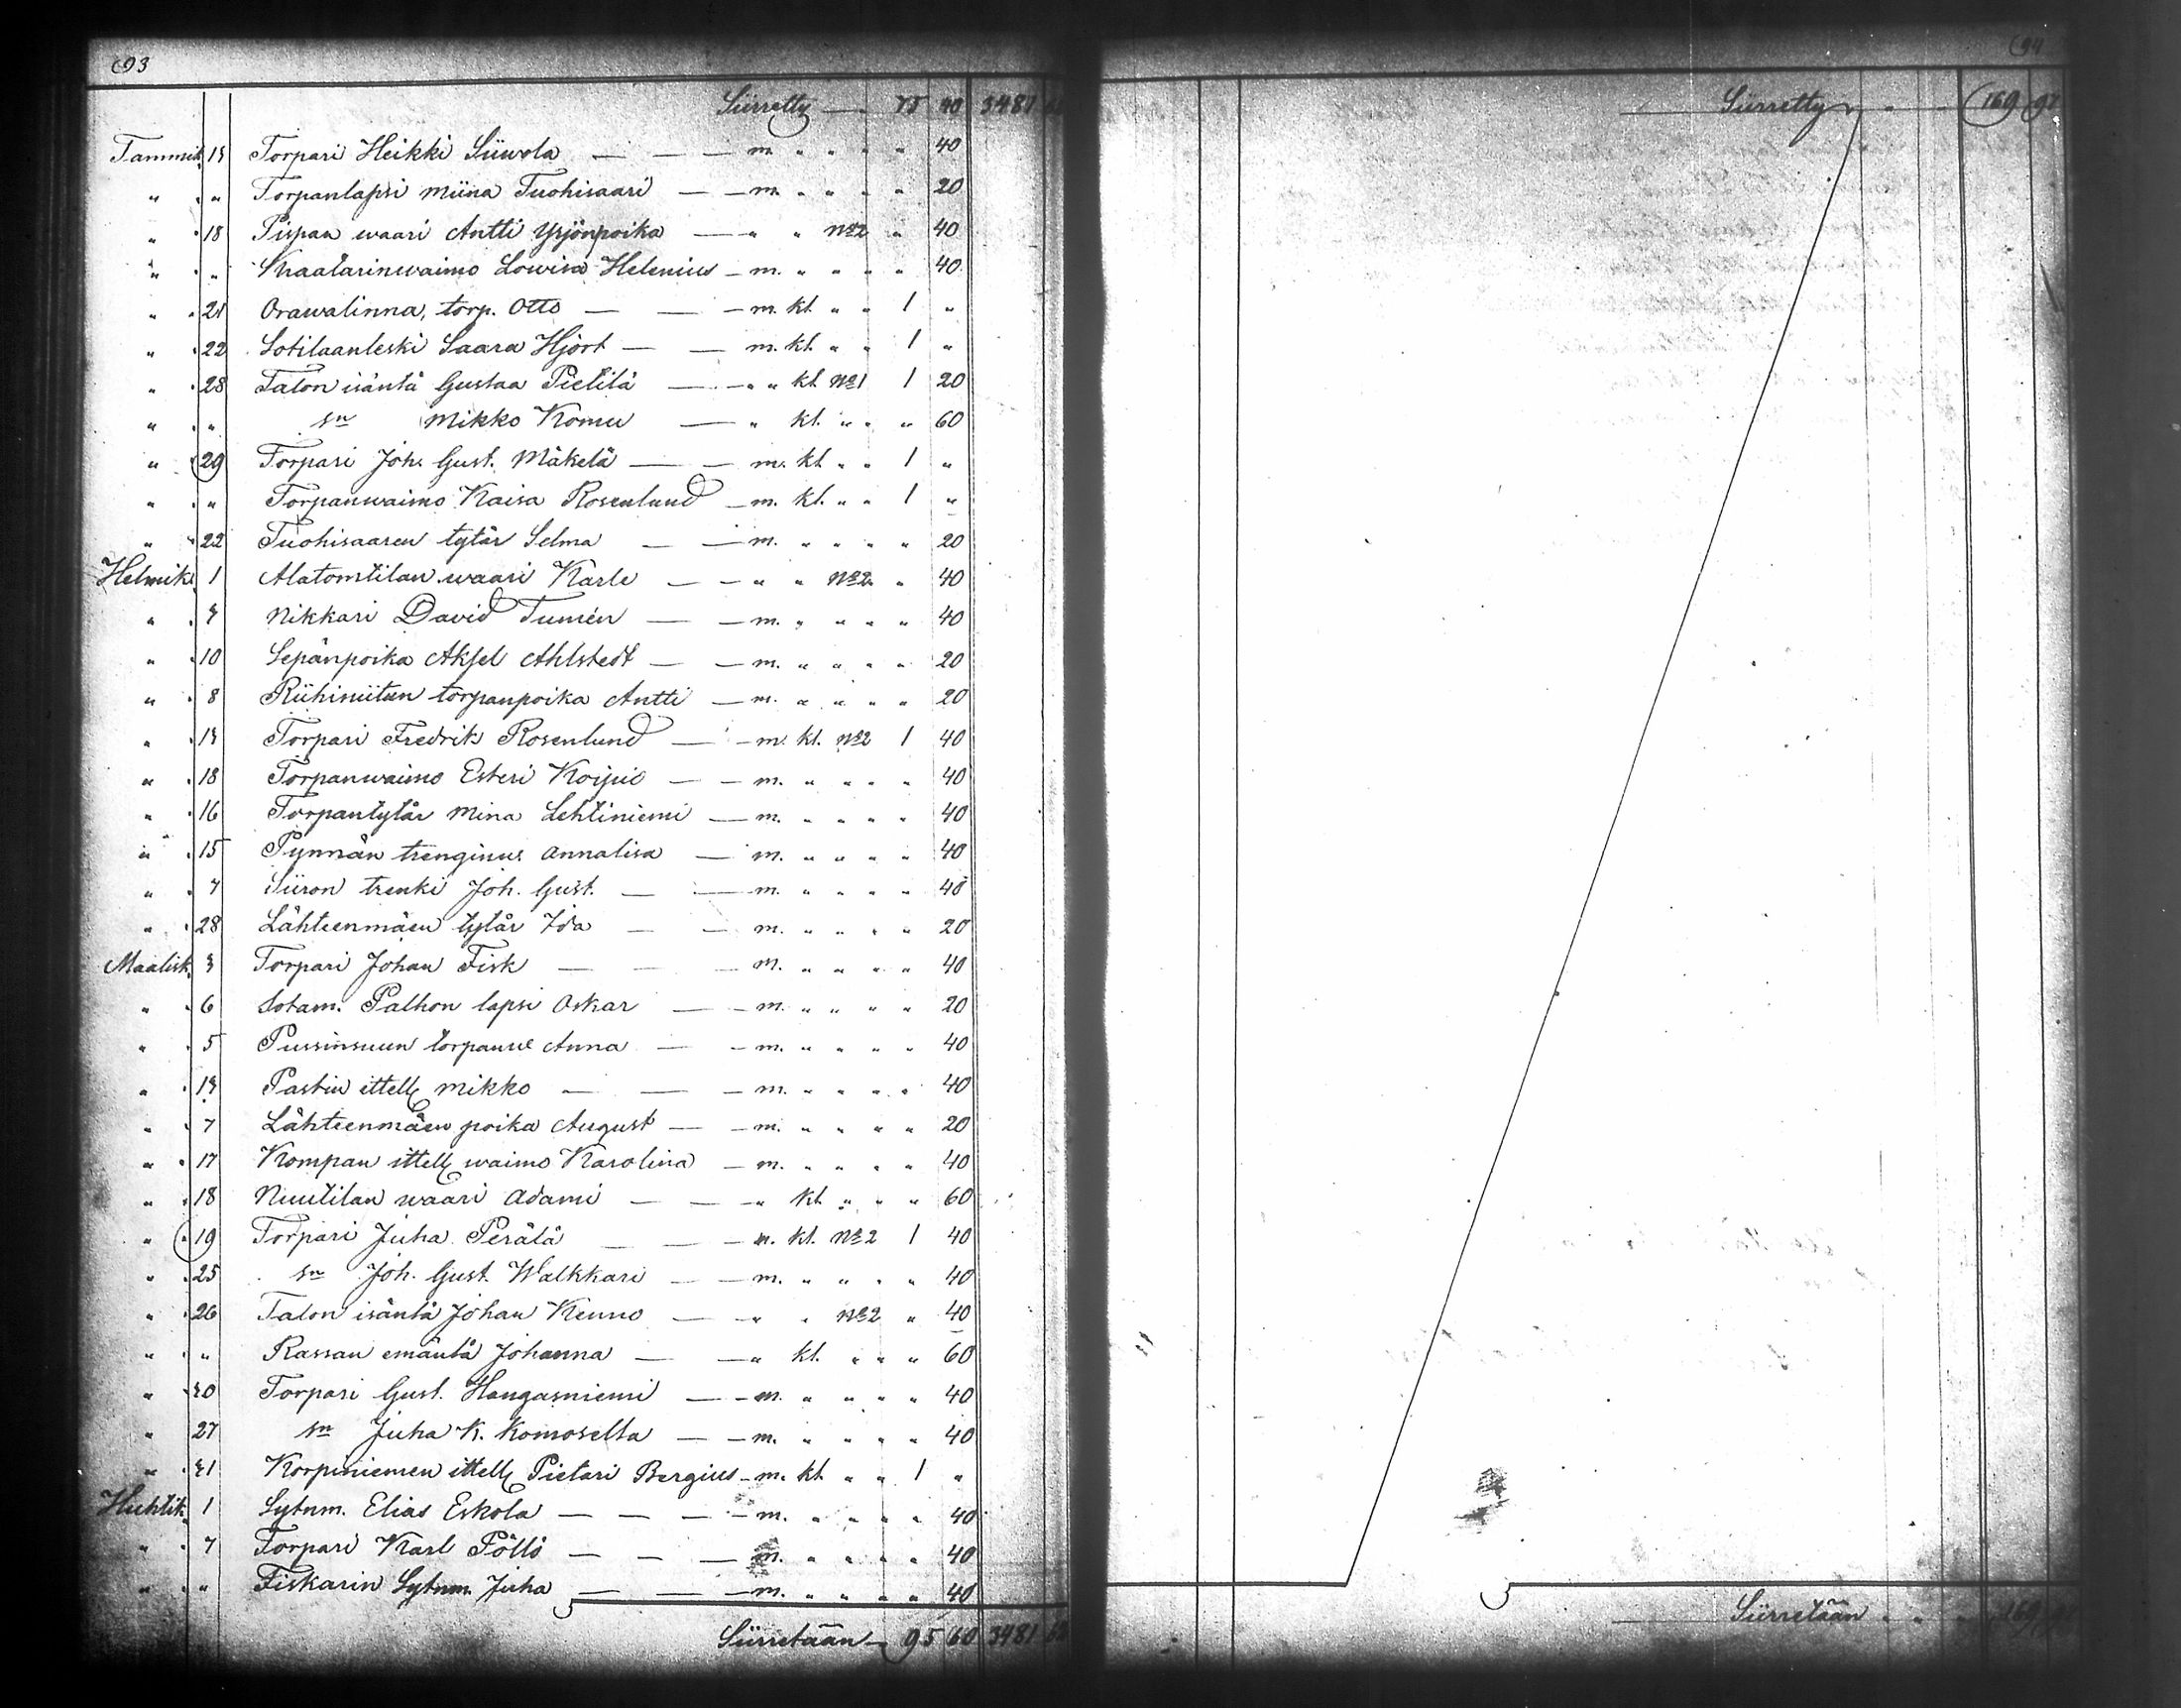 93
Siirretty — 75 40 3481
Tammik. 15 Torpari Heikki Siiwola — — — m. " " " " 40
" " " Torpanlapsi Miina Tuohisaari — — m. " " " " 20
" " 18 Pispan waari Antti Yrjönpoika — " " № 2 " 40
" " " Skaatarinwaimo Lowisa Helenius — m. " " " " 40
" " 21 Orawalinna, torp. Otto — — — m. kl. " " 1 "
" " 22 Sotilaanleski Saara Hjört — — m. kl. " " 1 "
" " 28 Talon isäntä Gustaa Pietilä — — " " kl. № 1 1 20
" " " sn Mikko Komu — " kl. " " " 60
" " 29 Torpari Joh. Gust. Mäkelä — — m. kl. " " 1 "
" " " Torpanwaimo Kaisa Rosenlund — m. kl. " " 1 "
" " 22 Tuohisaaren tytär Selma — — m. " " " " 20
Helmik. 1 Alatomtilan waari Karle — — " " № 2 " 40
" " Nikkari David Tumén — — m. " " " " 40
" " 10 Sepänpoika Aksel Ahlstedt — — m. " " " " 20
" " 8 Riihiniitun torpanpoika Antti — m. " " " " 20
" " 13 Torpari Fredrik Rosenlund — — m. kl. № 2 1 40
" " 18 Torpanwaimo Esteri Koipio — — m. " " " " 40
" " 16 Torpantytär Mina Lehtiniemi — m. " " " " 40
" " 15 Pynnän Annalisa — m. " " " " 40
" " 7 Siiron trenki Joh. Gust. — — m. " " " " 40
" " 28 Lähteenmäen tytär Ida — — m. " " " " 20
Maalisk. 3 Torpari Johan Fisk — — — m. " " " " 40
" " 6 Sotam. Palhon lapsi Oskar — — m. " " " " 20
" " 5 Pussinsuun Anna — — m. " " " " 40
" " 13 Pastin ittell. Mikko — — — m. " " " " 40
" " 7 Lähteenmäen poika August — — m. " " " " 20
" " 17 Kompan ittell. waimo Karolina — m. " " " " 40
" " 18 Nuutilan waari Adami — — " kl. " " " 60
" " 19 Torpari Juha Perälä — — m. kl. № 2 1 40
" " 25 sn Joh. Gust. Walkkari — — m. " " " " 40
" " 26 Talon isäntä Johan Kenno — — " " № 2 " 40
" " " Rassan emäntä Johanna — — " kl. " " " 60
" " 30 Torpari Gust. Hangasniemi — — m. " " " " 40
" " 27 sn Juha K. Komoselta — — m. " " " " 40
" " 31 Korpiniemen ittell. Pietari Bergius — m. kl. " " 1 "
Huhtik. 1 Lytnm. Elias Eskola — — — m. " " " " 40
" " 7 Torpari Karl Pöllö — — — m. " " " " 40
" " " Fiskarin Lytnm. Juha — — — m. " " " " 40
Siirretään — 95 60 3481
94
Siirretty " " — 169 97
Siirretään " " " 169